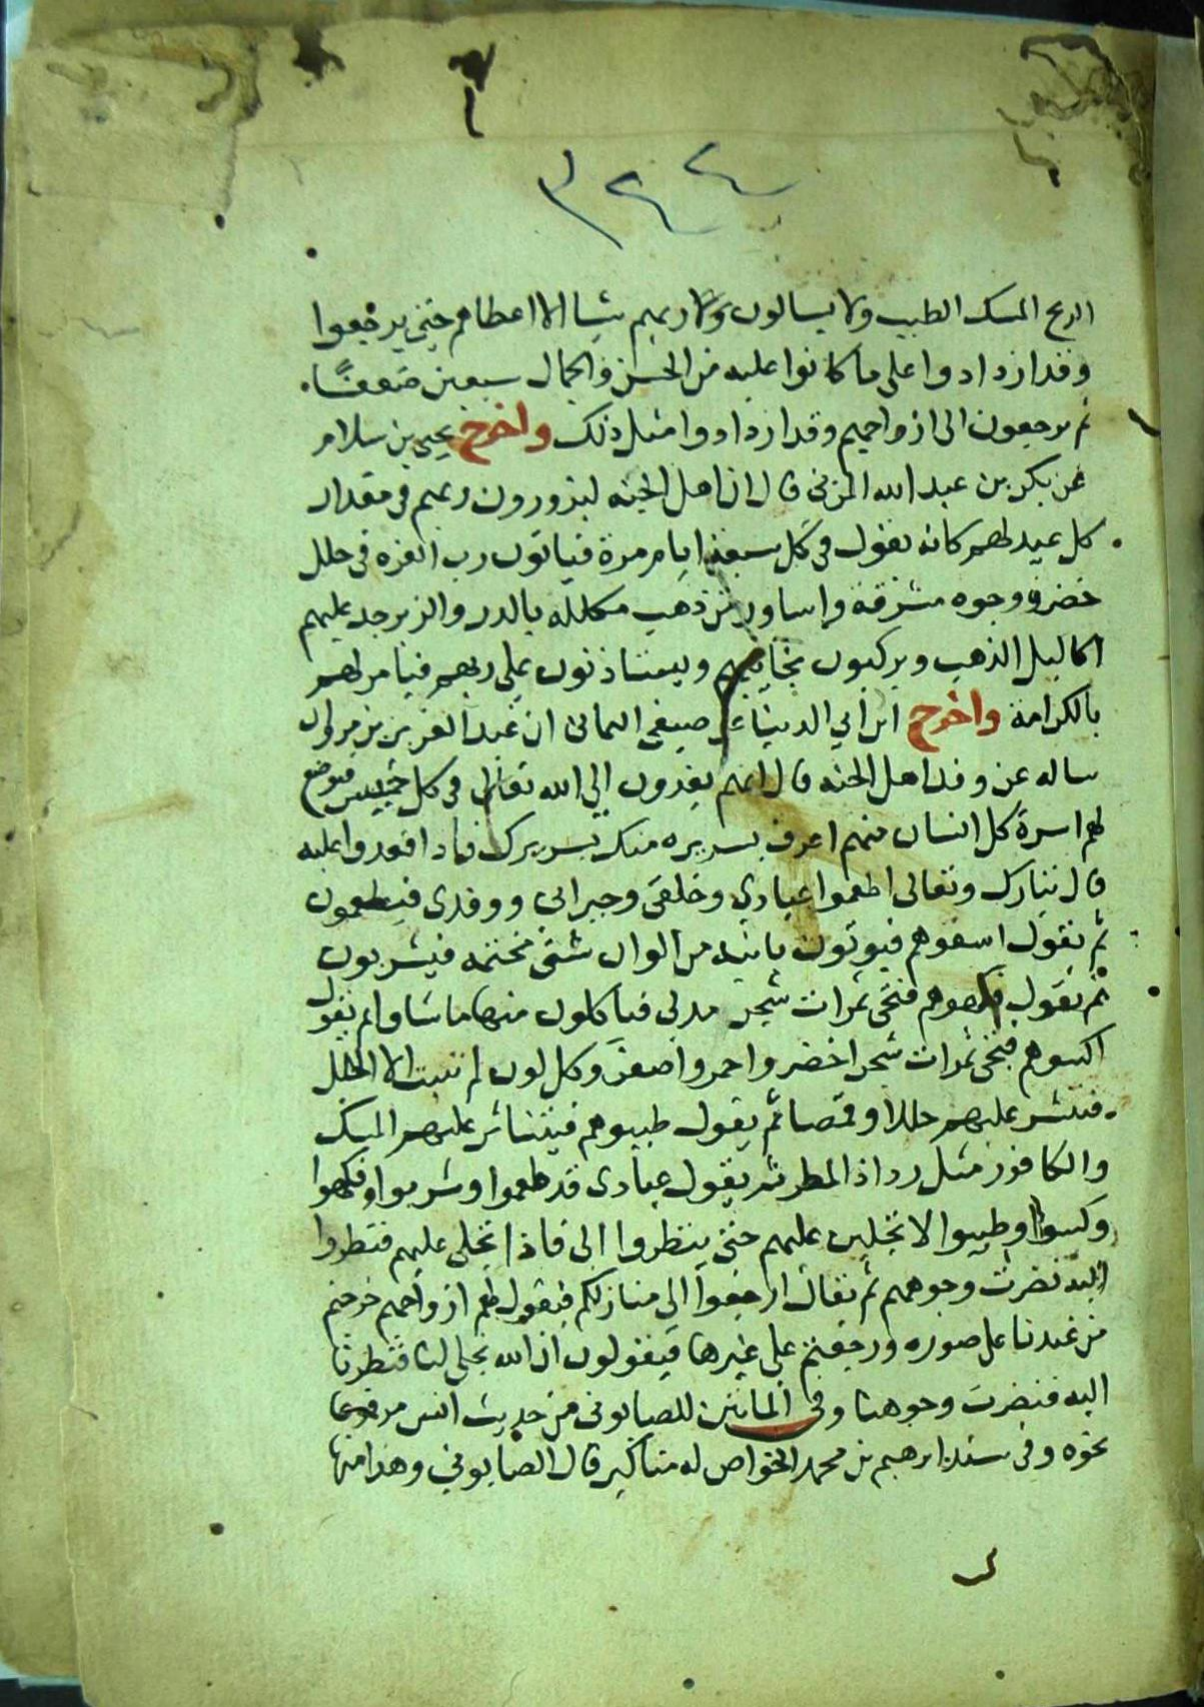 ٣٢٤
الريح المسك الطيب ولا يسالون ربهم شيا الا اعطاهم حتى يرجعوا
وقد ازدادوا على ما كانوا عليه من الحسن والجمال سبعين ضعفًا
ثم يرجعون الى ازواجهم وقد ازدادوا مثل ذلك واخرج يحيى بن سلام
عن بكر بن عبد الله المزنى قال ان اهل الجنه ليزورون ربهم فى مقدار
كل عيد لهم كانه يقول فى كل سبعة ايام مرة فياتون رب العزه فى حلل
خضر ووجوه مشرقة واساور من ذهب مكلله بالدر والزبرجد عليهم
اكاليل الذهب ويركبون نجايبهم ويستاذنون على ربهم فيامر لهم
بالكرامة واخرج ابن ابي الدنيا عن صيفى اليمانى ان عبد العزيز بن مروان
ساله عن وفد اهل الجنه قال انهم يفدون الي الله تعالى فى كل خميس فيوضع
لهم اسرة كل انسان منهم اعرف بسريره منك بسريرك فاذا قعدوا عليه
قال تبارك وتعالى اطعموا عبادي وخلقى وجيرانى ووفدى فيطعمون
ثم يقول اسقوهم فيوتون بانيه من الوان شتى مختمه فيشربون
ثم يقول فكهوهم فتجى ثمرات شجر مدلى فياكلون منها ما شاوا ثم يقول
اكسوهم فتجى ثمرات شجر اخضر واحمر واصفر وكل لون لم تنبت الا الحلل
فتنشر عليهم حللا وقمصا ثم يقول طيبوهم فيتناثر عليهم المسك
والكافور مثل رذاذ المطر ثم يقول عبادى قد طعموا وشربوا وفكهوا
وكسوا وطيبوا لاتجلين عليهم حتى ينظروا الى فاذا تجلى عليهم فنظروا
اليه نضرت وجوههم ثم يقال ارجعوا الى منازلكم فيقول لهم ازواجهم خرجتم
من عندنا على صوره ورجعتم على غيرها فيقولون ان الله تجلى لنا فنظرنا
اليه فنضرت وجوهنا وفى المائتين للصابونى من حديث انس مرفوعا
نحوه وفى سنده ابرهيم بن محمد الخواص له مناكير قال الصابونى وهذا منها